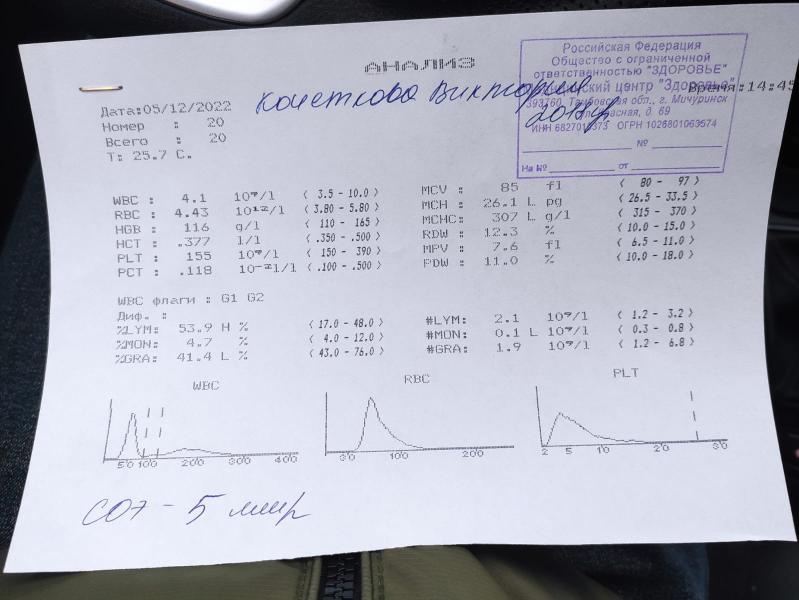 АНАЛИЗ
Российская Федерация
Общество с ограниченной
ответственностью "ЗДОРОВЬЕ"
центр "Здоровье"
393760, Тамбовская обл., г. Мичуринск
д. 69
ИНН 6827010373 ОГРН 1026801063574
№
На № от
Время:14:45
Кочеткова Виктория
Дата:05/12/2022
Номер : 20
Всего : 20
Т: 25.7 С.
WBC : 4.1 10⁹/l ( 3.5 - 10.0 )
RBC : 4.43 10¹²/l ( 3.80 - 5.80 )
HGB : 116 g/l ( 110 - 165 )
HCT : .377 l/l ( .350 - .500 )
PLT : 155 10⁹/l ( 150 - 390 )
PCT : .118 10⁻²l/l ( .100 - .500 )
MCV : 85 fl ( 80 - 97 )
MCH : 26.1 L pg ( 26.5 - 33.5 )
MCHC: 307 L g/l ( 315 - 370 )
RDW : 12.3 % ( 10.0 - 15.0 )
MPV : 7.6 fl ( 6.5 - 11.0 )
PDW : 11.0 % ( 10.0 - 18.0 )
WBC флаги : G1 G2
Диф. :
%LYM: 53.9 H % ( 17.0 - 48.0 )
%MON: 4.7 % ( 4.0 - 12.0 )
%GRA: 41.4 L % ( 43.0 - 76.0 )
#LYM: 2.1 10⁹/l ( 1.2 - 3.2 )
#MON: 0.1 L 10⁹/l ( 0.3 - 0.8 )
#GRA: 1.9 10⁹/l ( 1.2 - 6.8 )
WBC
50 100 200 300 400
RBC
30 100 200
PLT
2 5 10 20 30
СОЭ - 5 мм/р